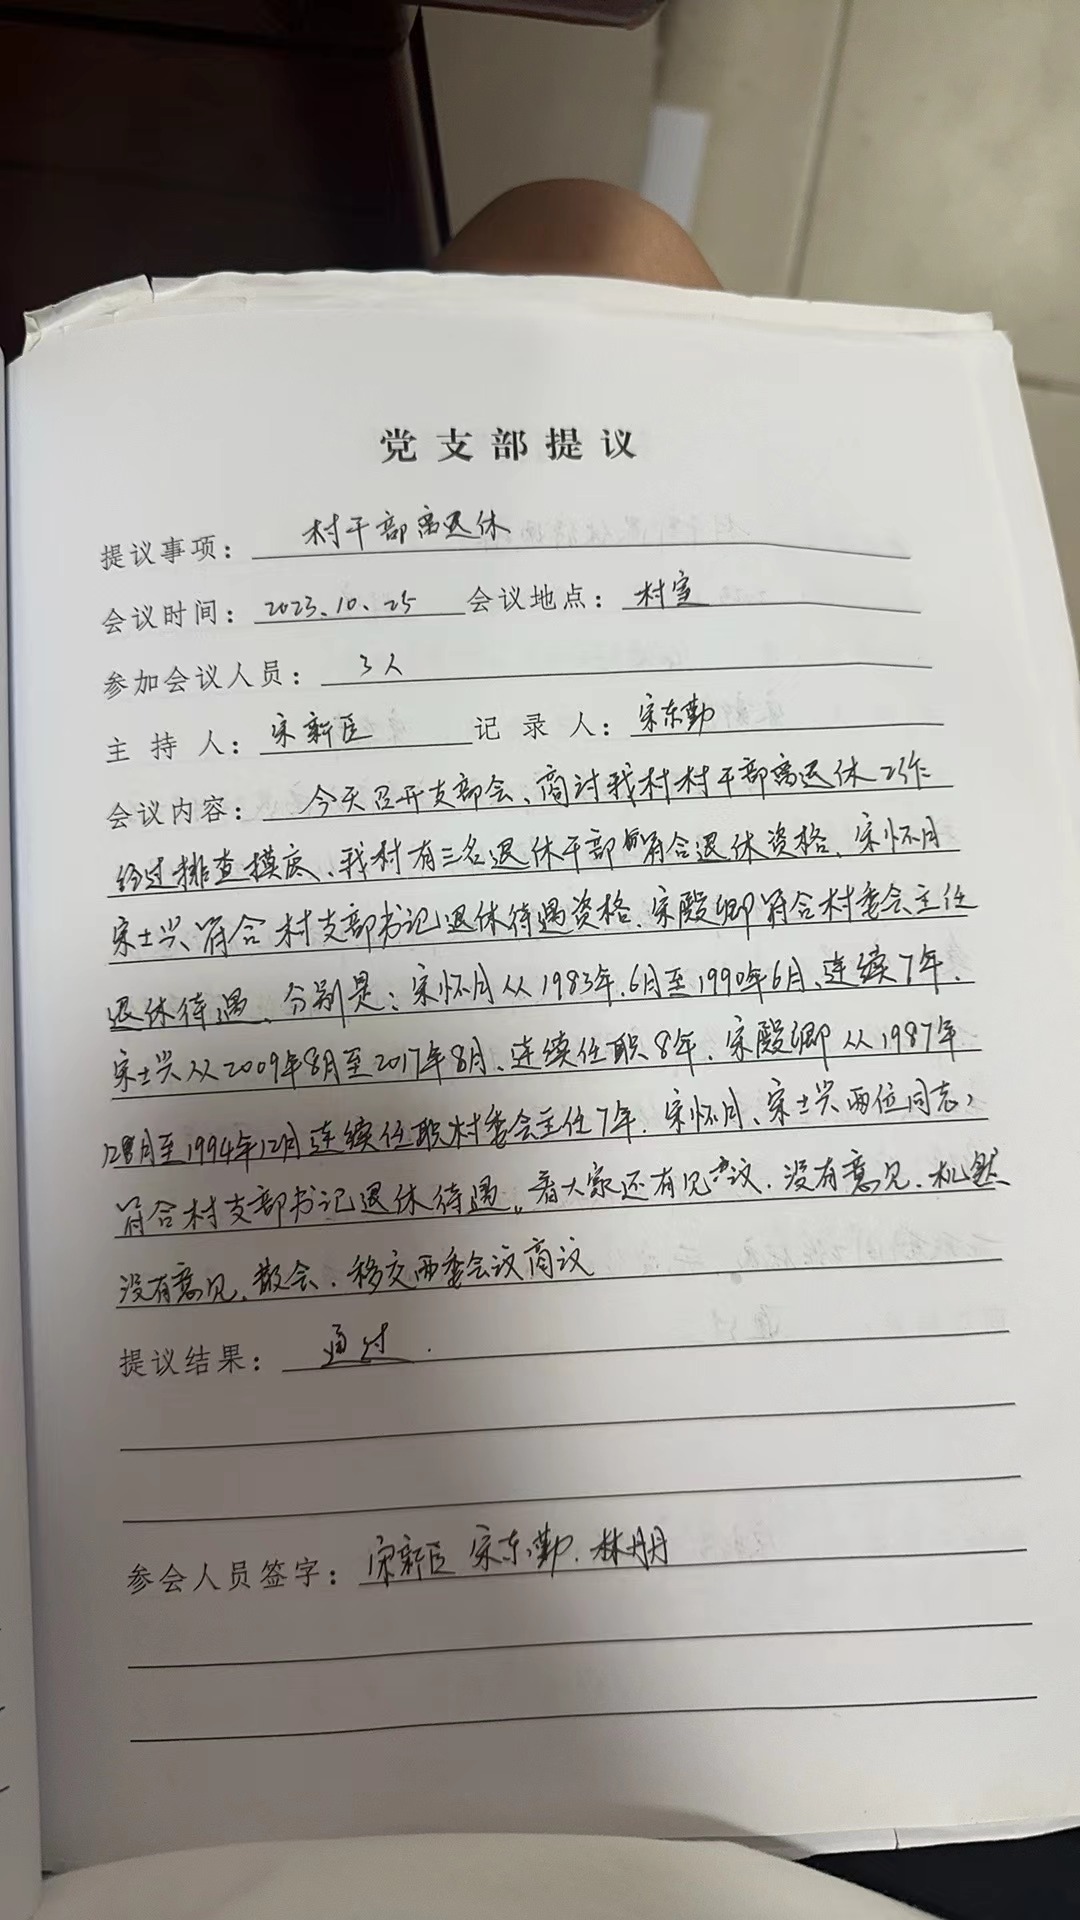 党支部提议
提议事项：村干部离退休
会议时间：2023.10.25 会议地点：村室
参加会议人员：3人
主持人：宋新臣 记录人：宋东勤
会议内容：今天召开支部会、商讨我村村干部离退休工作
经过排查摸底、我村有三名退休干部符合退休资格、宋怀月
宋士兴符合村支部书记退休待遇资格.宋殿卿符合村委会主任
退休待遇、分别是：宋怀月从1983年.6月至1990年6月、连续7年.
宋士兴从2009年8月至2017年8月、连续任职8年.宋殿卿从1987年
12月至1994年12月连续任职村委会主任7年.宋怀月、宋士兴两位同志，
符合村支部书记退休待遇。看大家还有见议.没有意见.机然
没有意见.散会.移交两委会议商议
提议结果：通过.
参会人员签字：宋新臣 宋东勤.林朋